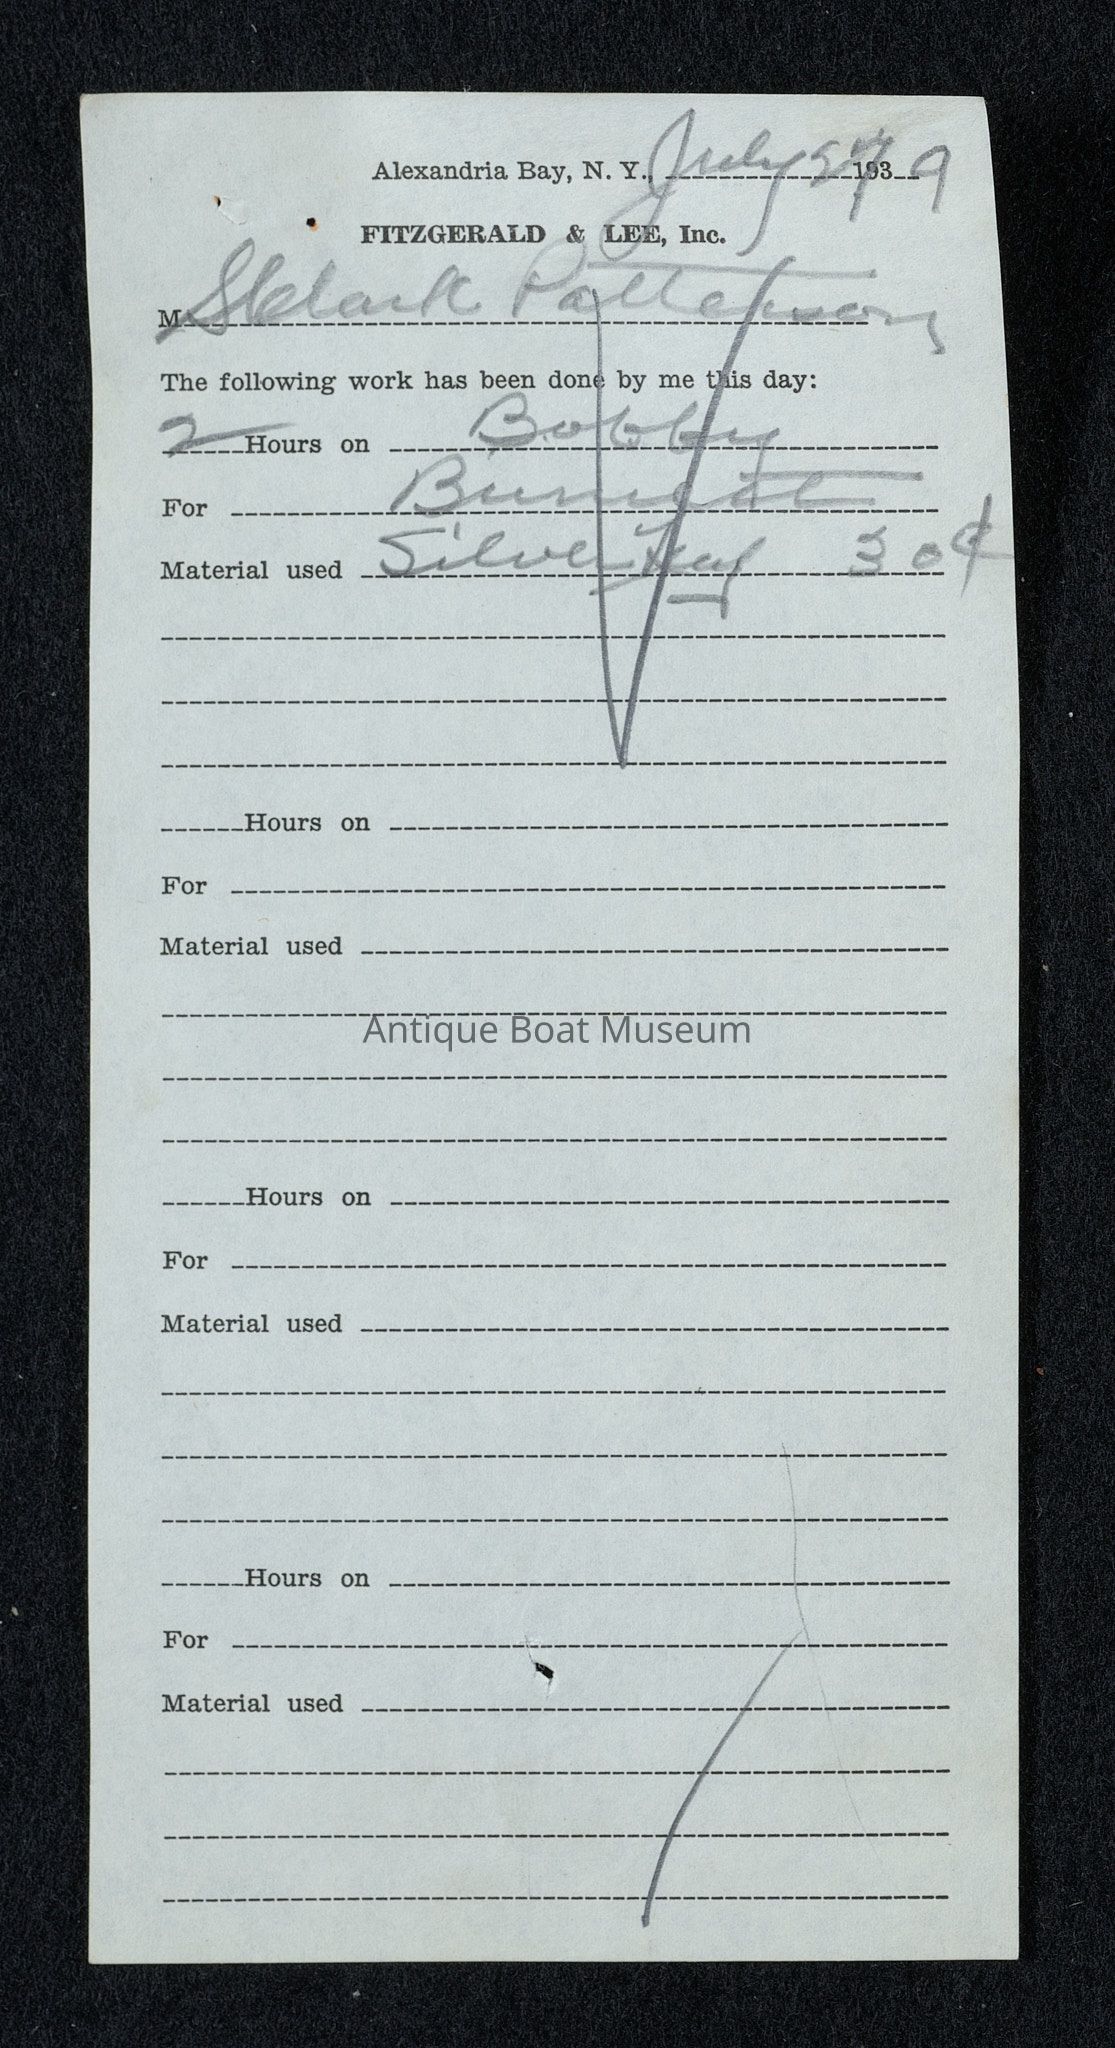 Alexandria Bay, N. Y., July 27 1939
FITZGERALD & LEE, Inc.
M Patterson
The following work has been done by me this day:
2 Hours on Bobby
For
Material used Silver 30¢
Hours on
For
Material used
Antique Boat Museum
Hours on
For
Material used
Hours on
For
Material used